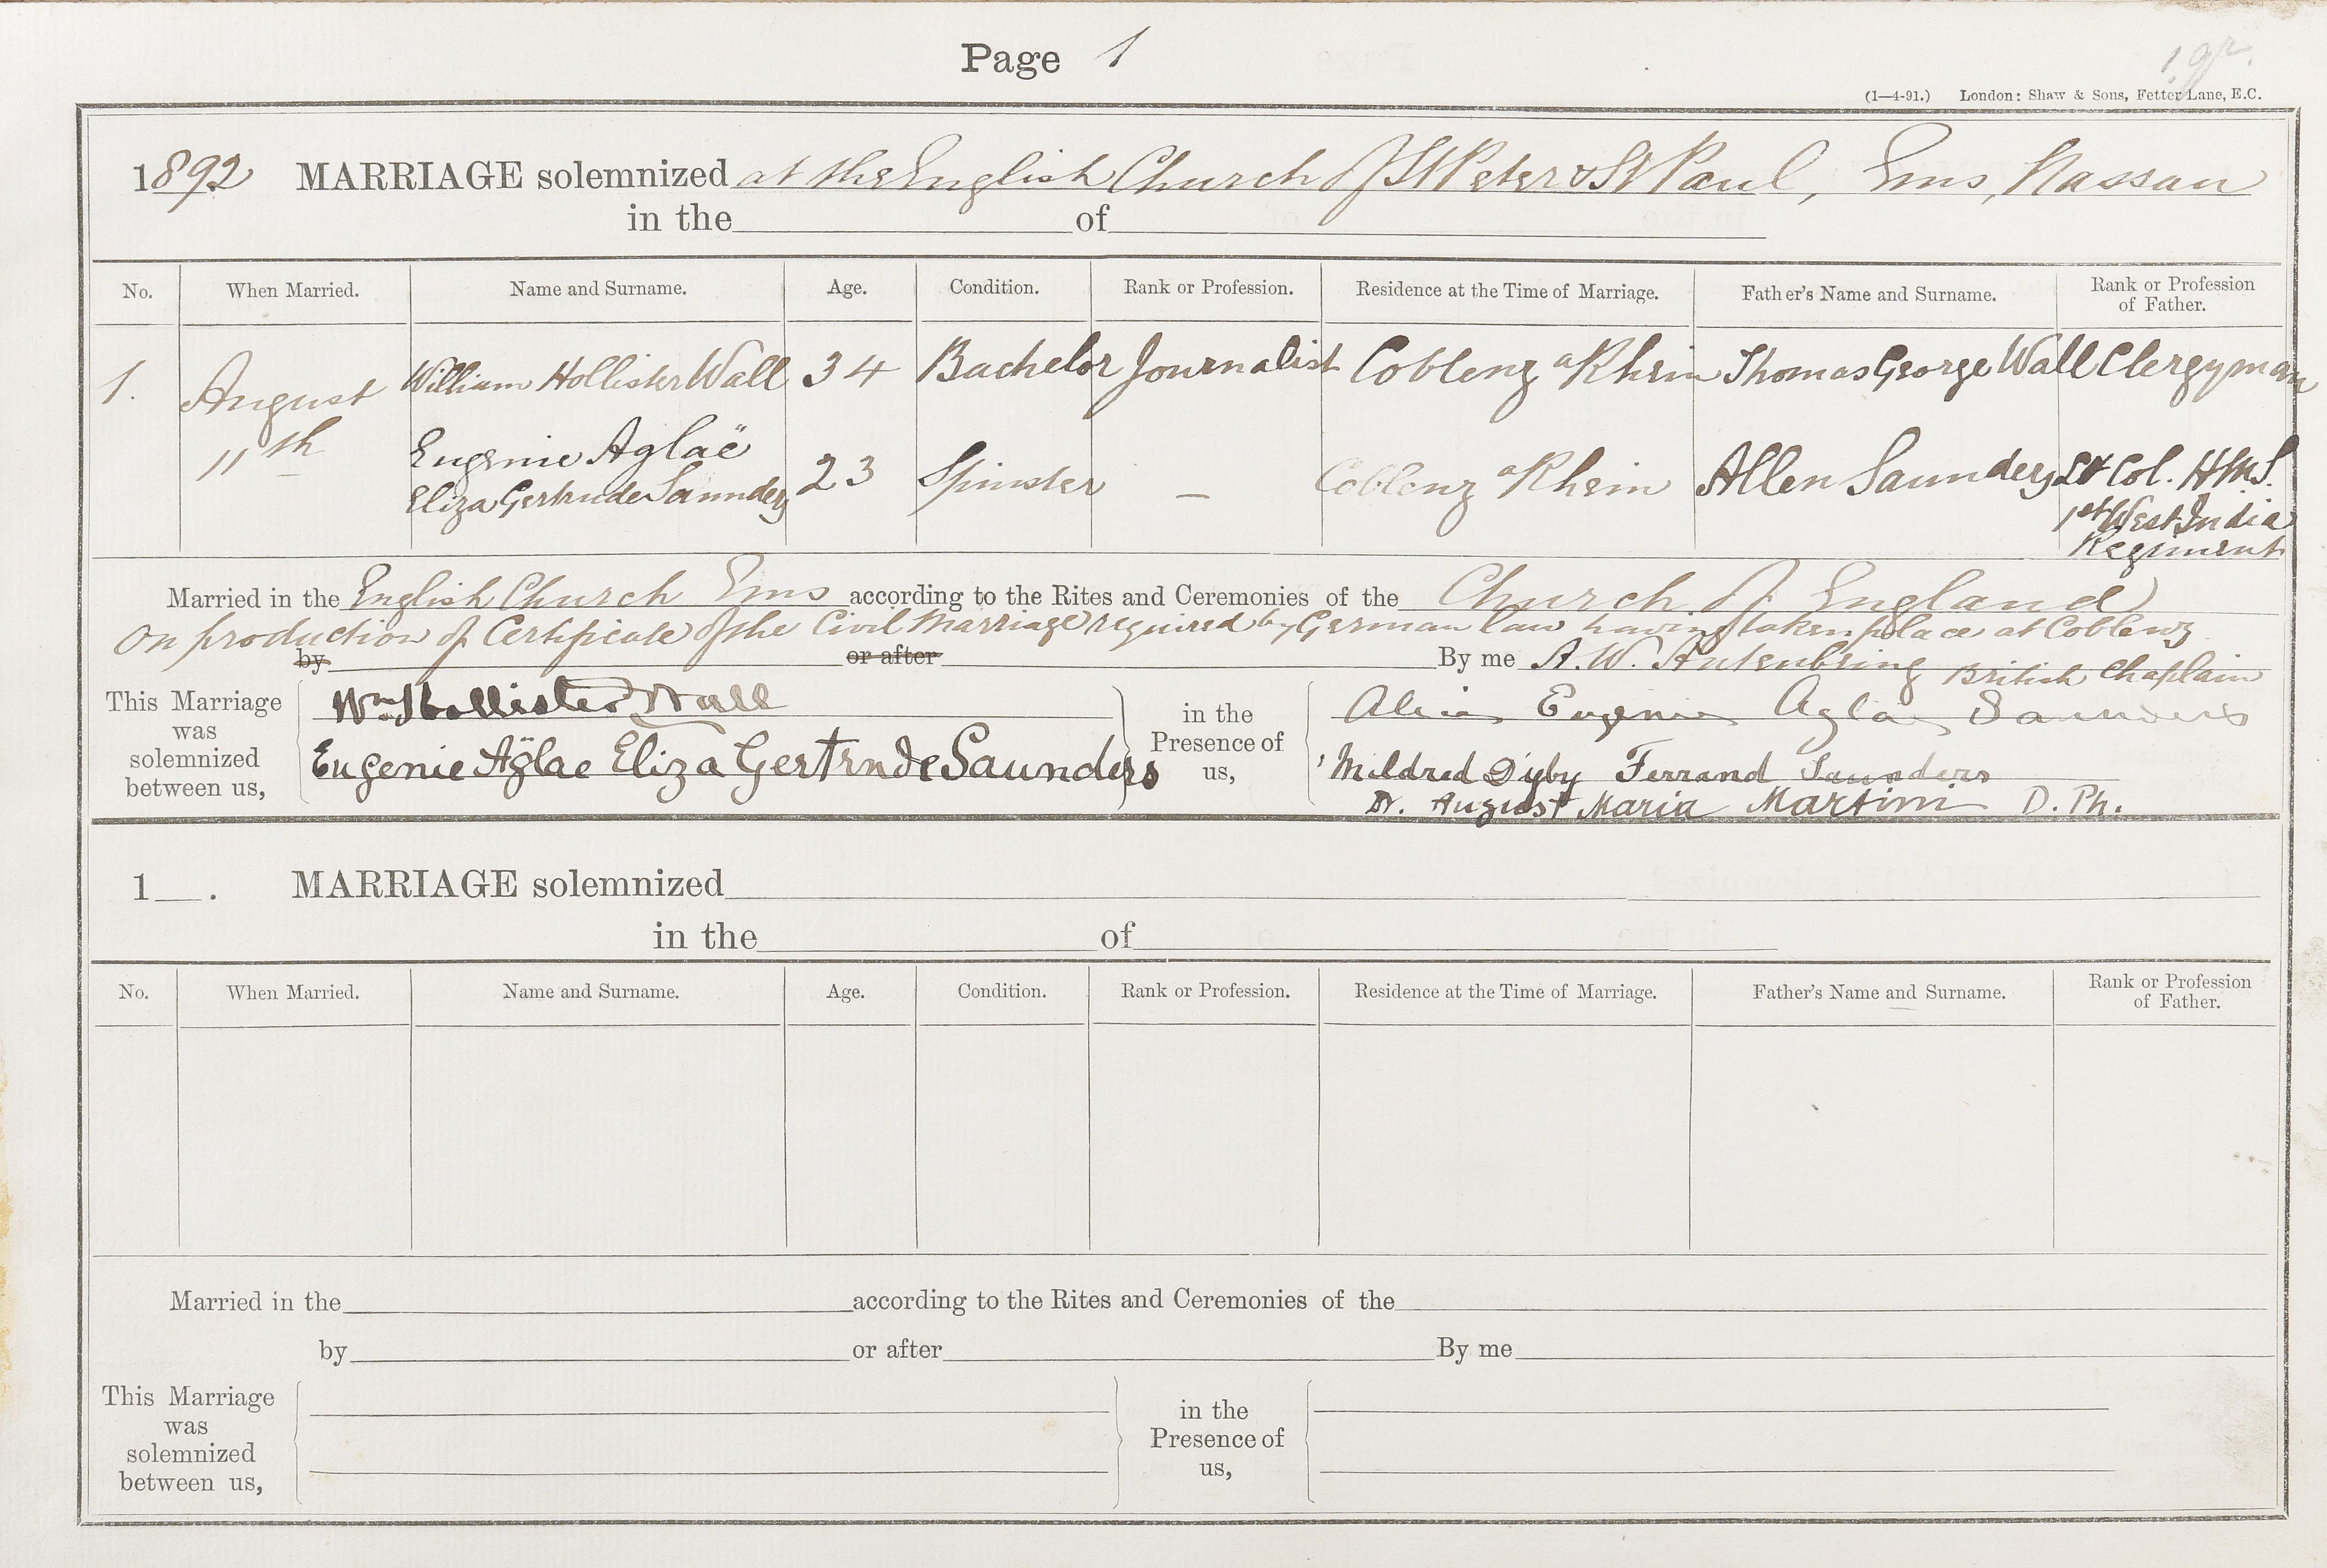 Page 1
(1—4-91.) London: Shaw & Sons, Fetter Lane, E.C.
1892 MARRIAGE solemnized at the English Church of St Peter & St Paul, Ems, Nassau
in the of
No. When Married. Name and Surname. Age. Condition. Rank or Profession. Residence at the Time of Marriage. Father's Name and Surname. Rank or Profession of Father.
1. August William Hollister Wall 34 Bachelor Journalist Coblenz a Rhein Thomas George Wall Clergyman
11th Eugenie Aglaë
Eliza Gertrude Saunders 23 Spinster — Coblenz a Rhein Allen Saunders Lt Col. H.M.S.
1st West India
Regiment
Married in the English Church Ems according to the Rites and Ceremonies of the Church of England
On production of Certificate of the Civil Marriage required by German law having taken place at Coblenz
by or after By me A. W. British Chaplain
This Marriage was solemnized between us,
Wm Hollister Wall
Eugenie Aglae Eliza Gertrude Saunders
in the Presence of us,
Eugenie Aglae Saunders
Mildred Digby Ferrand Saunders
Dr. August Maria Martini D. Ph.
1 . MARRIAGE solemnized
in the of
No. When Married. Name and Surname. Age. Condition. Rank or Profession. Residence at the Time of Marriage. Father's Name and Surname. Rank or Profession of Father.
Married in the according to the Rites and Ceremonies of the
by or after By me
This Marriage was solemnized between us,
in the Presence of us,